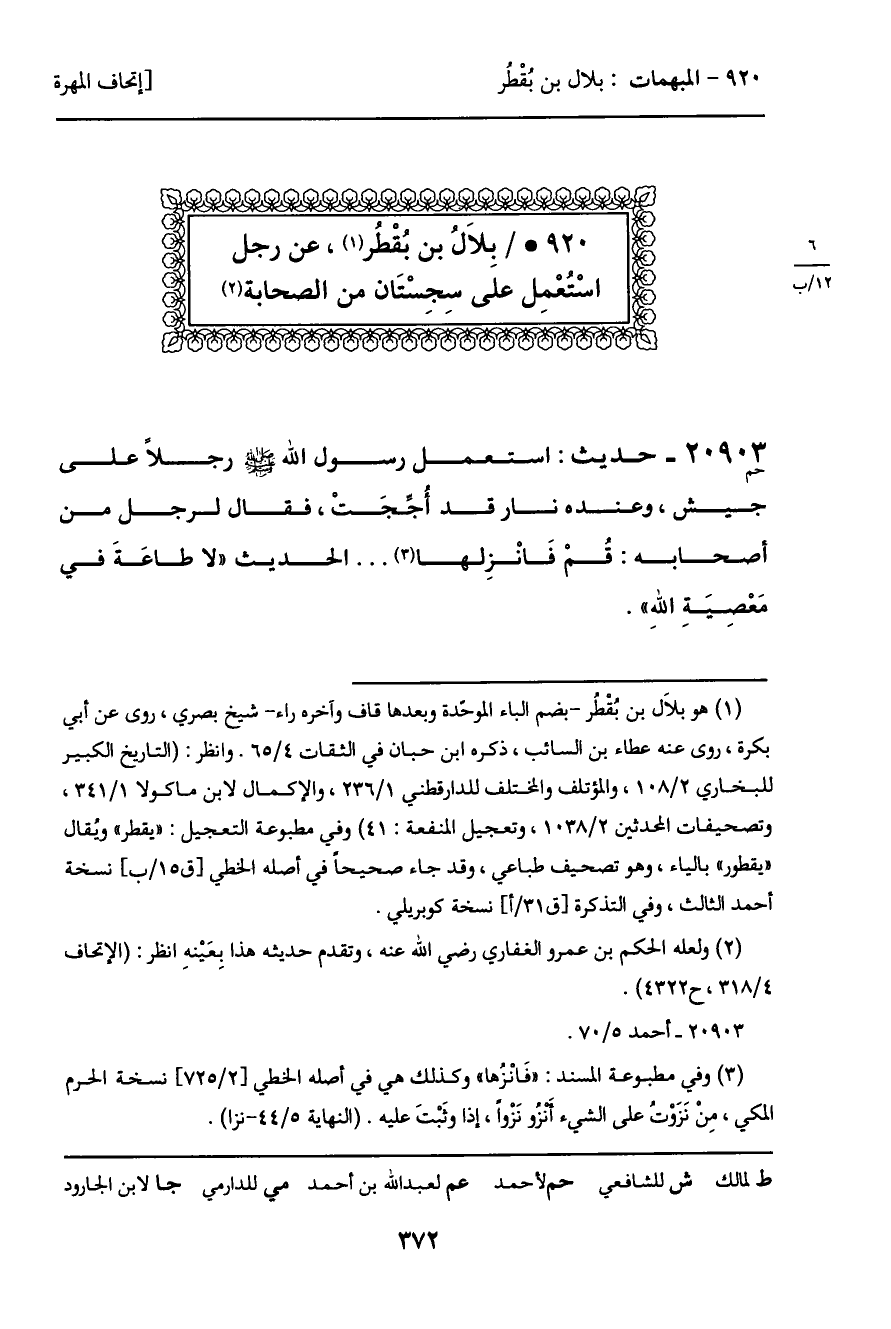 ٩٢٠ - المبهمات : بلال بن بُقْطُر
[إتحاف المهرة
٩٢٠ • / بِلاَلُ بن بُقْطُر(١) ، عن رجل
استُعْمِل على سِجِسْتَان من الصحابة(٢)
٦
١٢/ب
٢٠٩٠٣ ـ حديث : استعمل رسول الله ﷺ رجلاً على
حم
جيش ، وعنده نار قد أُجِّجَتْ ، فقال لرجل من
أصحابه : قُمْ فَانْزِلها(٣) . . . الحديث «لا طاعَةَ في
مَعْصِيَةِ اللهِ» .
(١) هو بلاَل بن بُقْطُر -بضم الباء الموحّدة وبعدها قاف وآخره راء- شيخ بصري ، روى عن أبي
بكرة ، روى عنه عطاء بن السائب ، ذكره ابن حبان في الثقات ٦٥/٤ . وانظر : (التاريخ الكبير
للبخاري ١٠٨/٢ ، والمؤتلف والمختلف للدارقطني ٢٣٦/١ ، والإكمال لابن ماكولا ٣٤١/١ ،
وتصحيفات المحدثين ١٠٣٨/٢ ، وتعجيل المنفعة : ٤١) وفي مطبوعة التعجيل : «يقطر» ويُقال
«يقطور» بالياء ، وهو تصحيف طباعي ، وقد جاء صحيحاً في أصله الخطي [ق١٥/ب] نسخة
أحمد الثالث ، وفي التذكرة [ق٣١/أ] نسخة كوبريلي .
(٢) ولعله الحكم بن عمرو الغفاري رضي الله عنه ، وتقدم حديثه هذا بِعَيْنهِ انظر : (الإتحاف
٣١٨/٤ ، ح٤٣٢٢) .
٢٠٩٠٣ ـ أحمد ٧٠/٥ .
(٣) وفي مطبوعة المسند : «فَانْزُها» وكذلك هي في أصله الخطي [٧٢٥/٢] نسخة الحرم
المكي ، مِنْ نَزَوْتُ على الشيء أَنْزُو نَزْواً ، إذا وثَبْتَ عليه . (النهاية ٤٤/٥-نزا) .
ط لمالك ش للشافعي حم لأحمد عم لعبدالله بن أحمد مي للدارمي جا لابن الجارود
٣٧٢